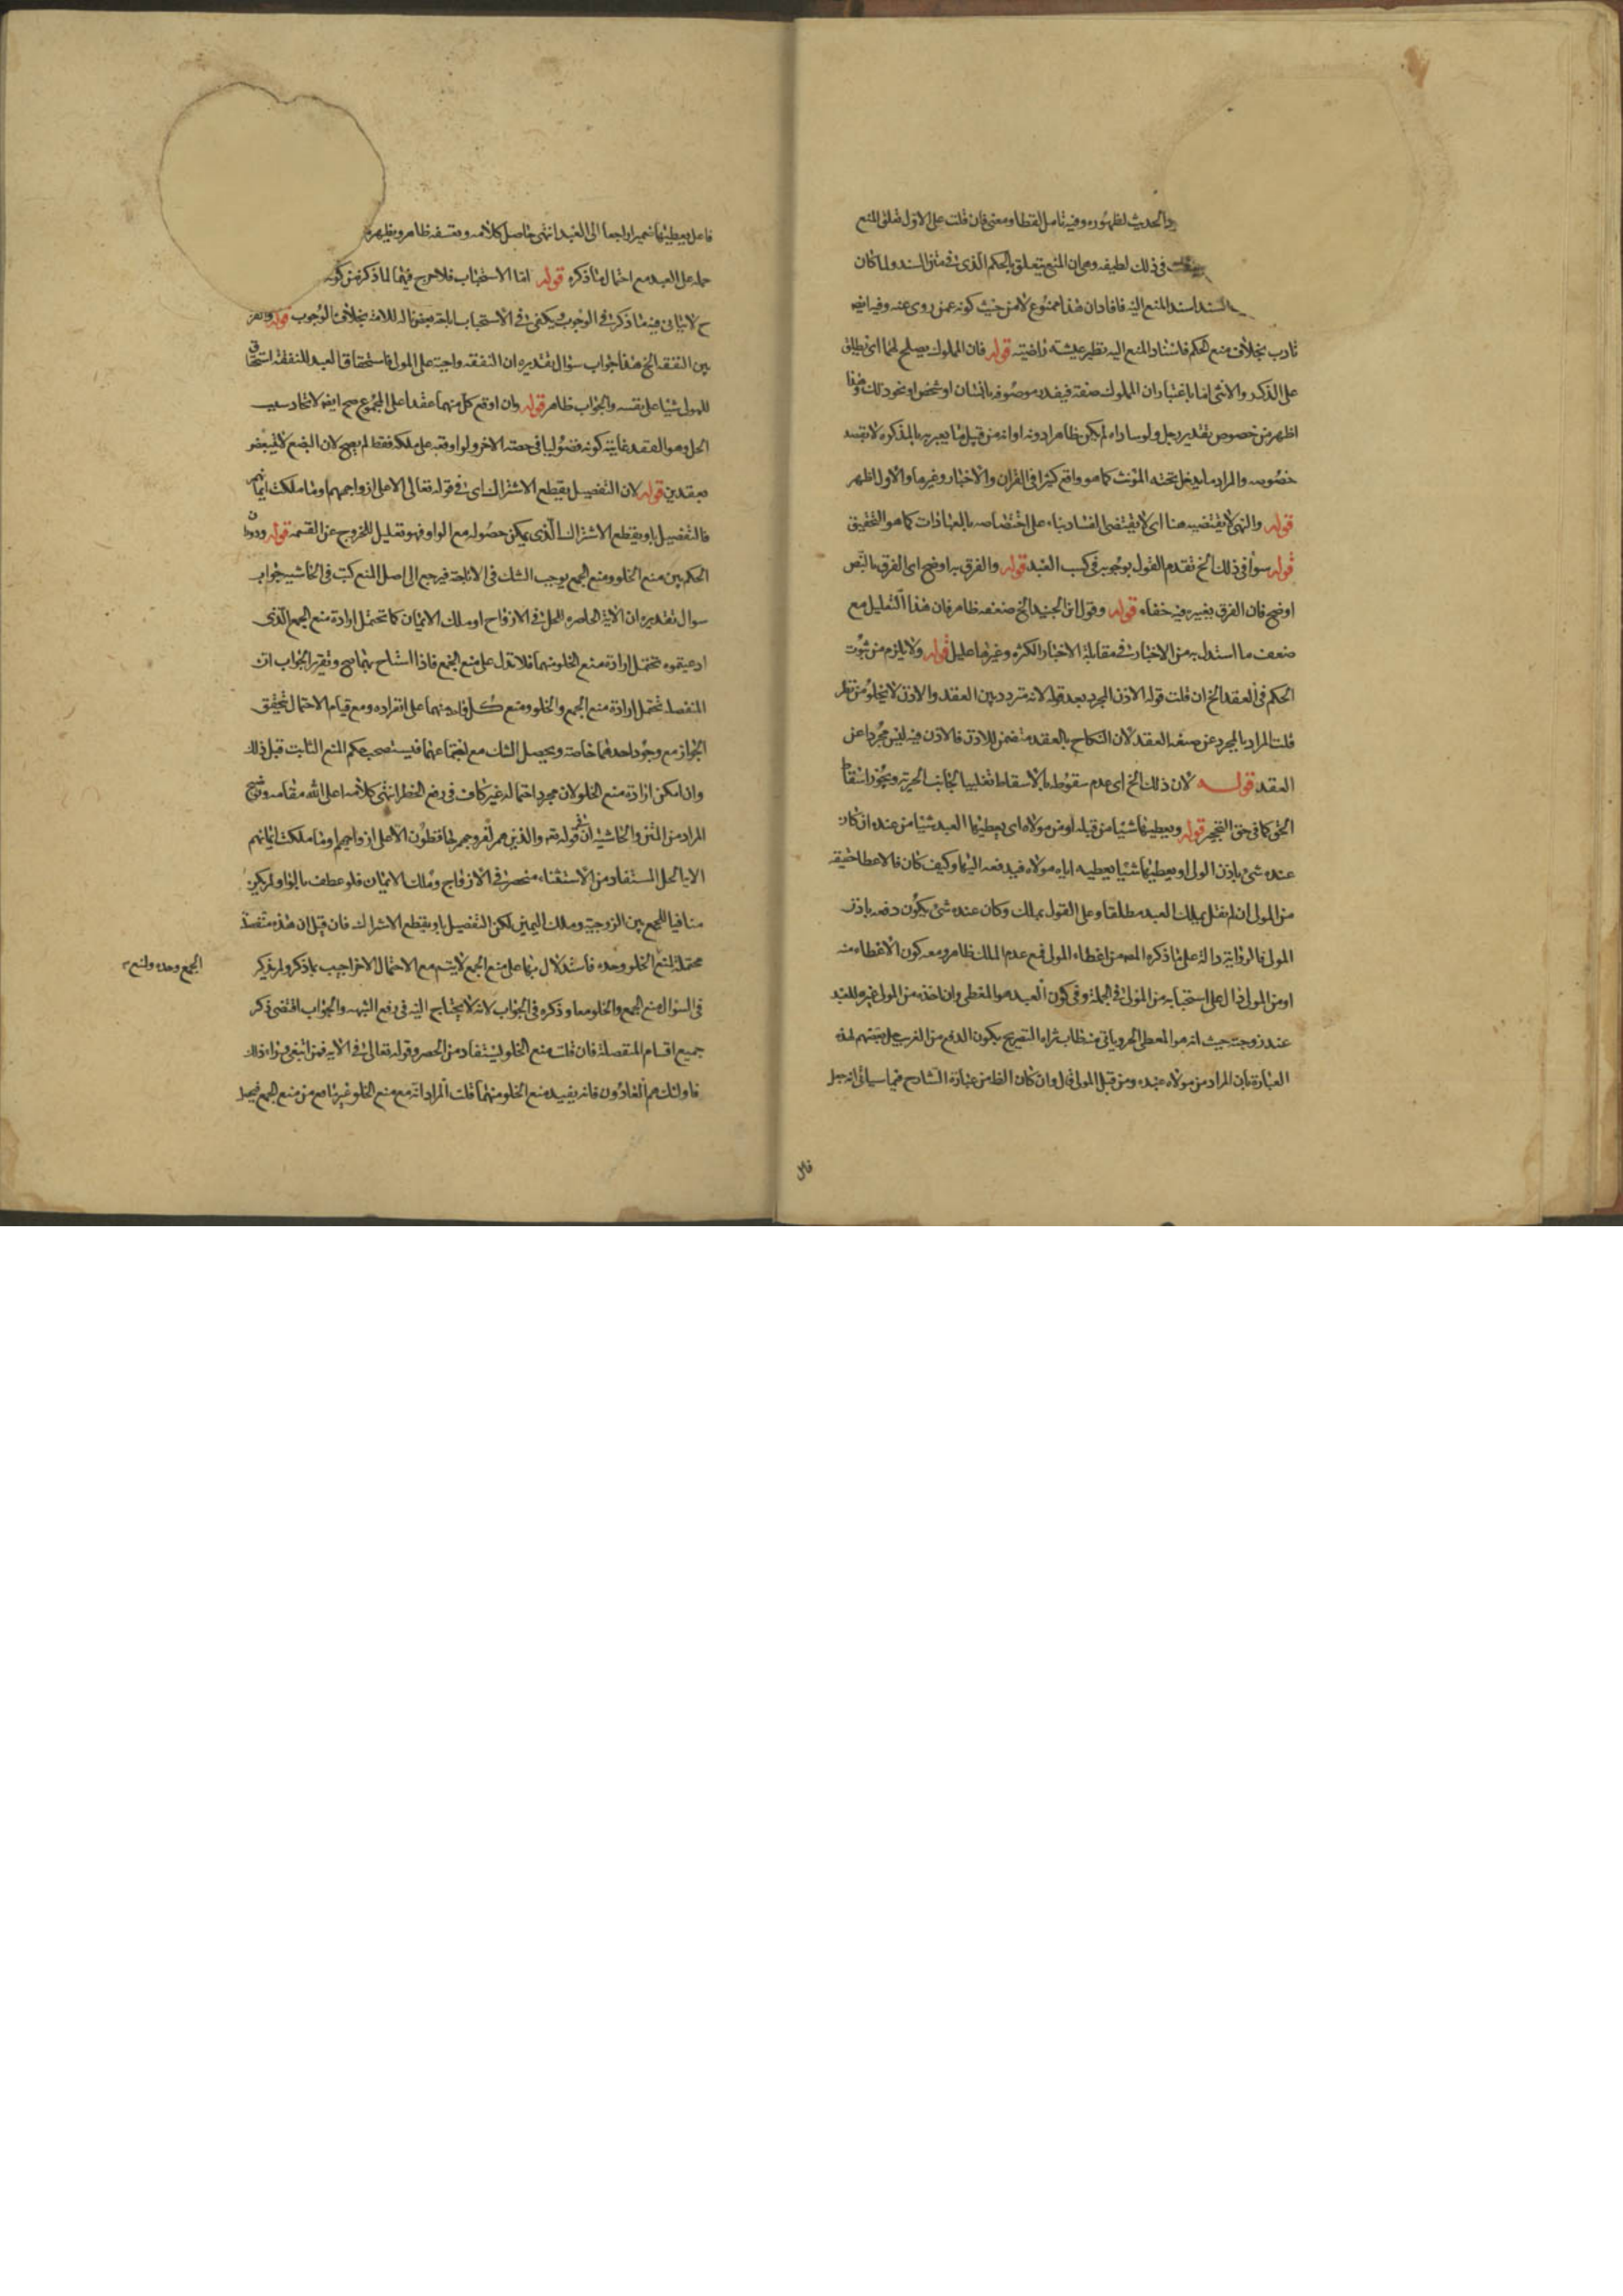 والحديث لظهوره وفيه تامل لفظا ومعنى فان قلت على الاول تعلق المنع
في ذلك لطيفه وهى ان المنع يتعلق بالحكم الذى في متن السند ولما كان
السند اسند المنع اليه فافاد ان هذا ممنوع لا من حيث كونه عمن روى عنه وفيه ايضا
تادب بخلاف منع الحكم فاسناد المنع اليه نظير عيشة راضية قوله فان المملوك يصلح لهما اى يطلق
على الذكر والانثى اما باعتبار ان المملوك صفة فيقدر موصوفه بانسان او شخص او نحو ذلك وهذا
اظهر من خصوص تقدير رجل ولو ساواه لم يكن ظاهرا دونه او انه من قبيل ما يعبر به بالمذكر ولا يقصد
خصوصه والمراد ما يدخل تحته المؤنث كما هو واقع كثيرا في القران والاخبار وغيرها والاول اظهر
قوله والنهى لا يقتضيه هنا اى لا يقتضى الفساد بناء على اختصاصه بالعبادات كما هو التحقيق
قوله سواء في ذلك الخ تقدم القول بوجوبه في كسب العبد قوله والفرق به اوضح اى الفرق بالنص
اوضح فان الفرق بغيره فيه خفاء قوله وقول ابن الجنيد الخ ضعفه ظاهر فان هذا التعليل مع
ضعف ما استدل به من الاخبار في مقابلة الاخبار الكثيره وغيرها عليل قوله ولا يلزم من ثبوت
الحكم في العقد الخ ان قلت قوله الاذن المجرد بعد قوله لانه متردد بين العقد والاذن لا يخلو من نظر
قلت المراد بالمجرد عن صيغه العقد لان النكاح بالعقد متضمن للاذن فالاذن فيه ليس مجردا عن
العقد قوله لان ذلك الخ اى عدم سقوطه بالاسقاط تغليبا لجانب الحرية ويجوز اسقاط
الحق كما في حق التحجير قوله ويعطيها شيئا من قبله او من مولاه اى يعطيها العبد شيئا من عنده ان كان
عنده شئ باذن المولى او يعطيها شيئا يعطيه اياه مولاه فيدفعه اليها وكيف كان فالاعطا حقيقة
من المولى ان لم نقل بملك العبد مطلقا وعلى القول بملك وكان عنده شئ يكون دفعه باذن
المولى فالرواية دالة على ما ذكره المصه من اعطاء المولى فمع عدم الملك ظاهر ومعه كون الاعطاء منه
او من المولى دال على استحبابه من المولى في الجملة وفي كون العبد هو المعطى وان اخذه من المولى غيره للعبد
عند زوجته حيث انه هو المعطى
العبارة بان المراد من مولاه عبده ومن قبل المولى قال وان كان الظ من عبارة الشارح فيما سياتى انه جعل
قال
فاعل يعطيها ضميرا راجعا الى العبد انتهى حاصل كلامه وتعسفه ظاهر ويظهر
حمله على العبد مع احتمال ما ذكره قوله اما الاستحباب فلا حرج فيهما لما ذكر من كونه
ح لا ينافي فيه ما ذكر في الوجوب ويكفى في الاستحباب بخلاف الوجوب قوله والفرق
بين النفقه الخ هذا جواب سؤال تقديره ان النفقه واجبة على المولى فاستحقاق العبد للنفقه استحقاق
للمولى شيئا على نفسه والجواب ظاهر قوله وان اوقع كل منهما عقدا على المجموع صح ايضا لاتحاد سبب
الحل وهو العقد غايته كونه فضوليا في حصة الاخر ولو اوقعه على ملكه فقط لم يصح لان البضع لا يتبعض
بعقدين قوله لان التفصيل يقطع الاشتراك اى في قوله تعالى الا على ازواجهم او ما ملكت ايمانهم
فالتفصيل باو يقطع الاشتراك الذى يمكن حصوله مع الواو فهو تعليل للخروج عن القسمه قوله ودوران
الحكم بين منع الخلو ومنع الجمع يوجب الشك في الاباحة فيرجع الى اصل المنع كتب في الحاشيه جواب
سوال تقديره ان الاية الحاصرة للحل في الازواح او ملك الايمان كما تحتمل ارادة منع الجمع الذى
ادعيتموه تحتمل ارادة منع الخلو منهما فلا تدل على منع الجمع فاذا استباح بهما صح وتقرير الجواب ان
المنفصله تحتمل ارادة منع الجمع والخلو ومنع كل واحد منهما على انفراده ومع قيام الاحتمال تحقق
الجواز مع وجود احدهما خاصة ويحصل الشك مع اجتماعهما فيستصحب حكم المنع الثابت قبل ذلك
وان امكن ارادة منع الخلو لان مجرد احتماله غير كاف في رفع الحظر انتهى كلامه اعلى الله مقامه وتوضيح
المراد من المتن والحاشيه ان قوله تعه والذين هم لفروجهم حافظون الا على ازواجهم او ما ملكت ايمانهم
الايه الحل المستفاد من الاستثناء منحصر في الازواج وملك الايمان فلو عطف بالواو لم يكن
منافيا للجمع بين الزوجية وملك اليمين لكن التفصيل باو يقطع الاشتراك فان قيل ان هذه منفصلة
محتملة لمنع الخلو وحده فاستدلال بها على منع الجمع لا يتم مع الاحتمال الاخر اجيب بما ذكر ولم يذكر
الجمع وحده ولمنع
في السؤال منع الجمع والخلو معا وذكره في الجواب لانه لا يحتاج اليه في رفع الشبهه والجواب اقتضى ذكر
جميع اقسام المنفصلة فان قلت منع الخلو يستفاد من الحصر وقوله تعالى في الايه فمن ابتغى وراء ذلك
فاولئك هم العادون فانه يفيد منع الخلو منهما قلت المراد انه مع منع الخلو غير مانع من منع الجمع فيحصل